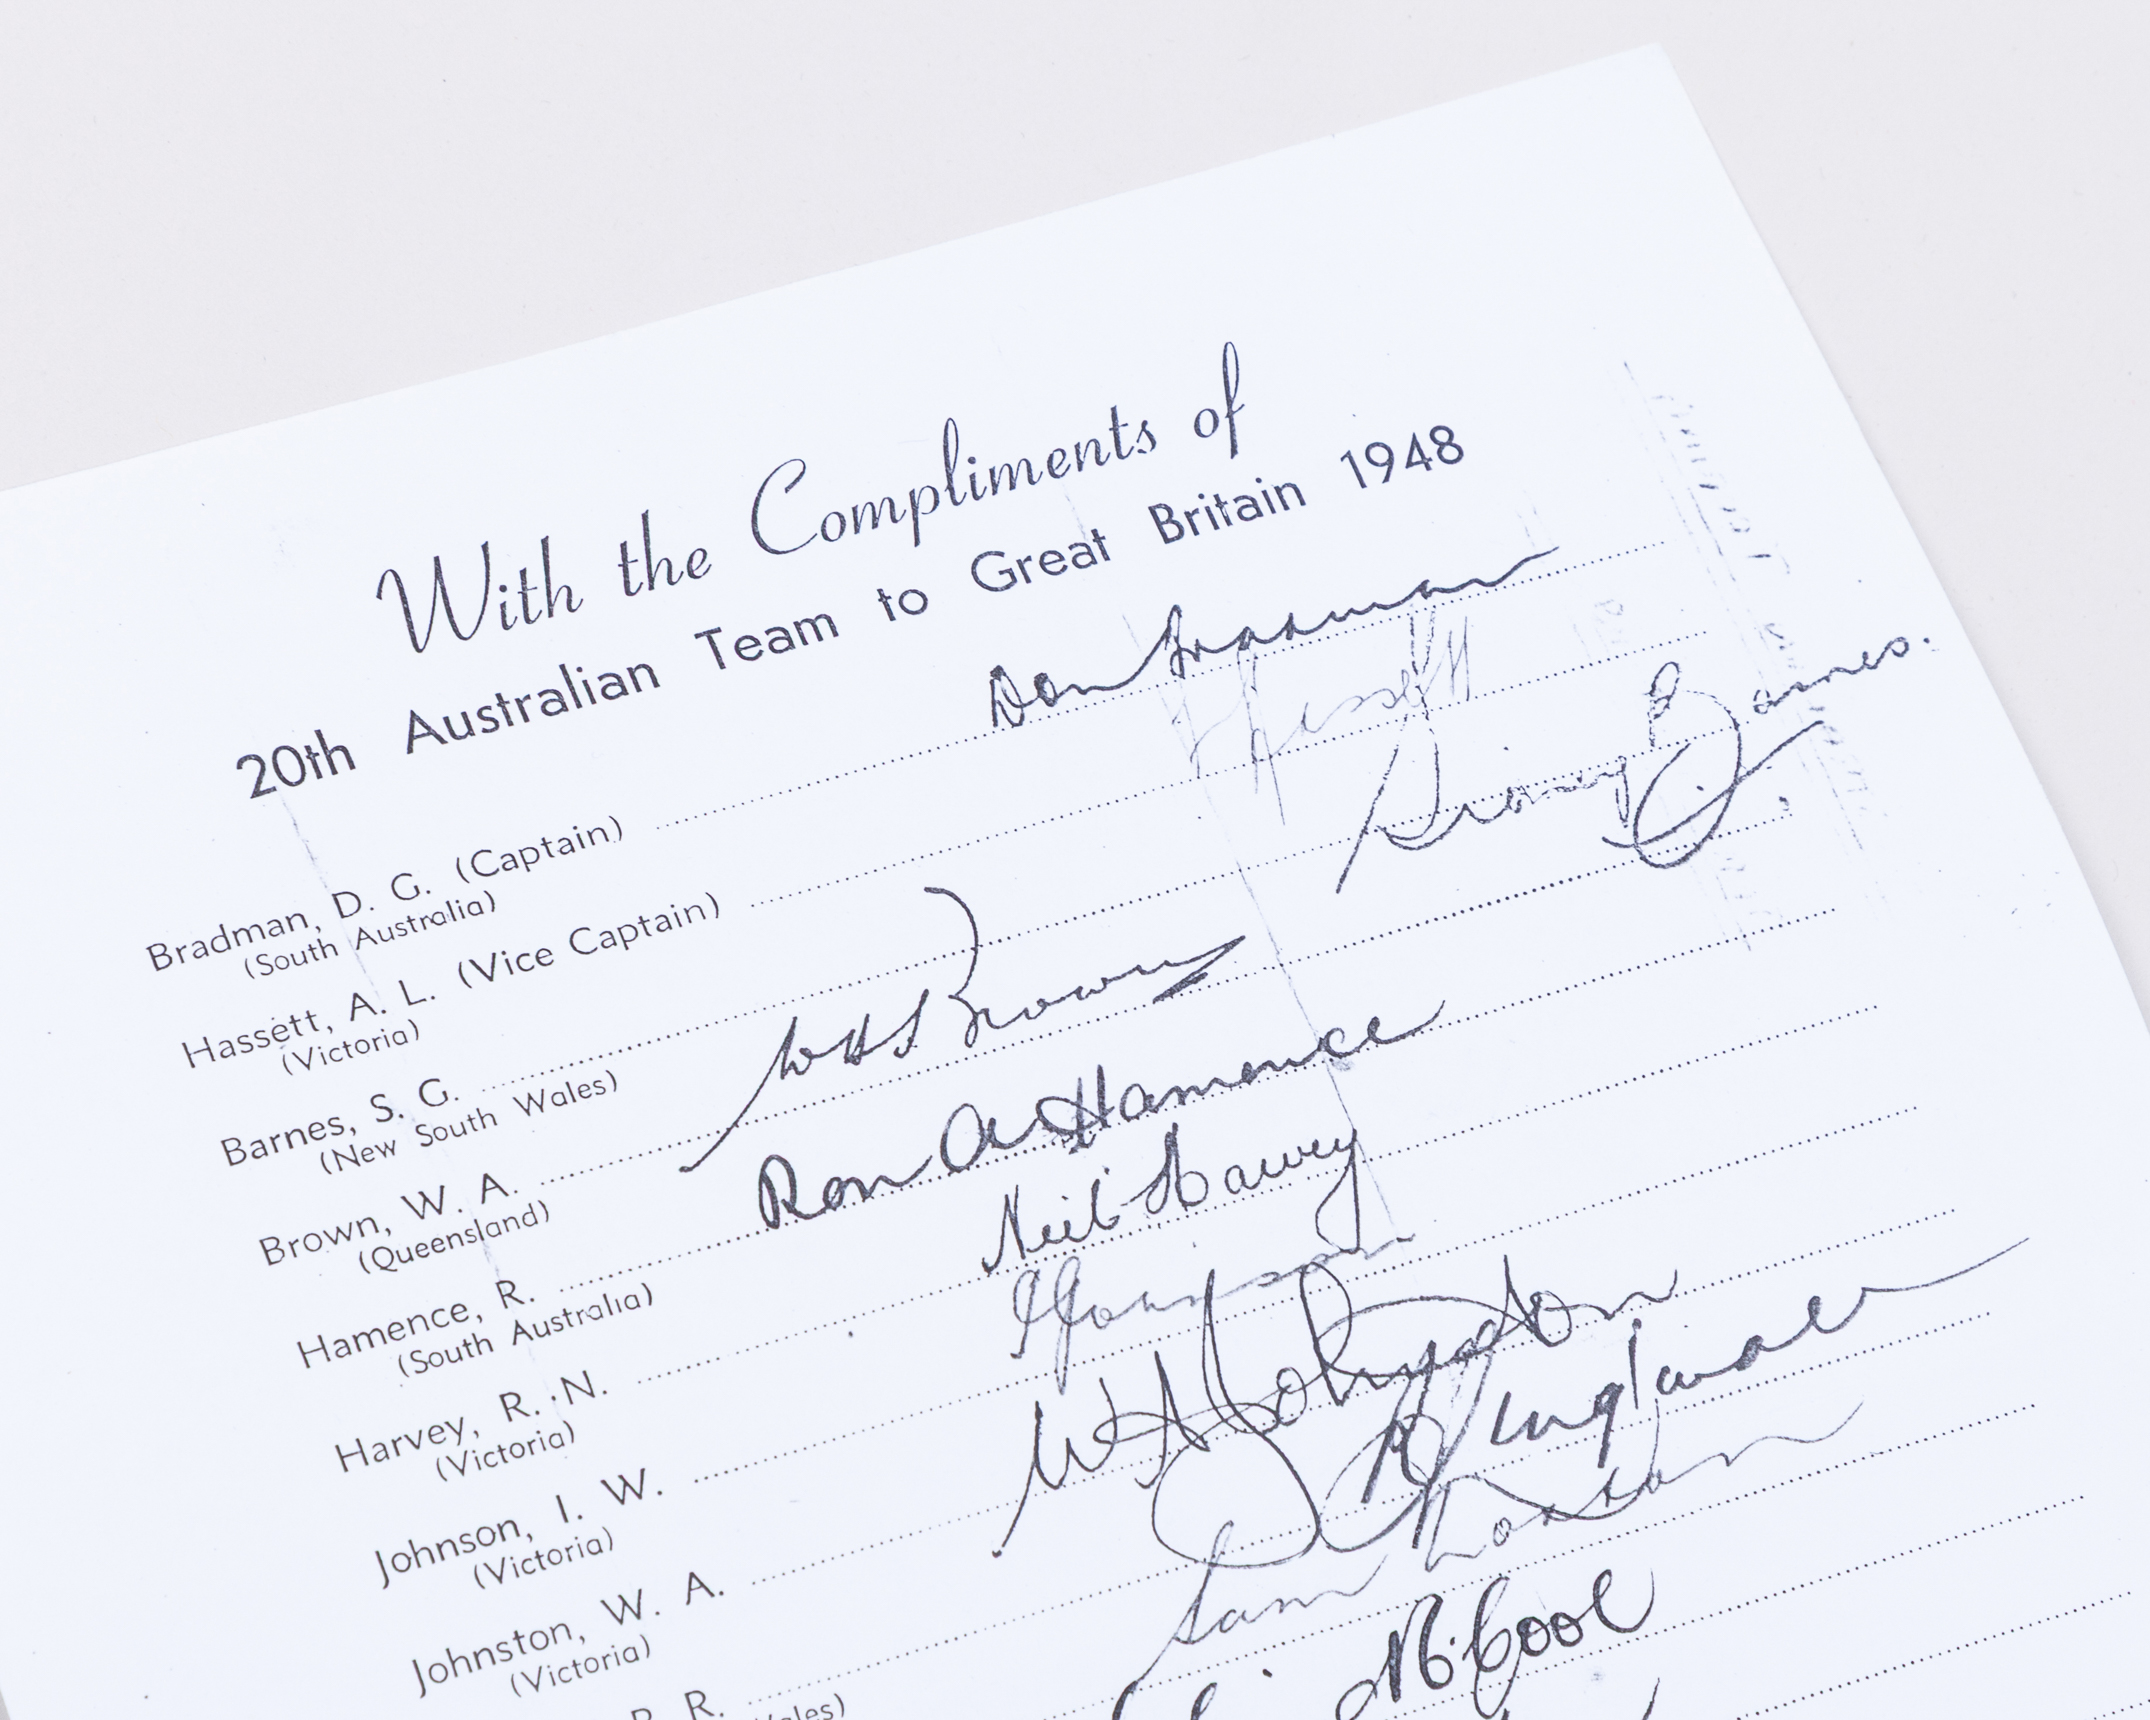 With the Compliments of
20th Australian Team to Great Britain 1948
Bradman, D. G. (Captain) Don Bradman
(South Australia)
Hassett, A. L. (Vice Captain) Hassett
(Victoria)
Barnes, S. G. Sidney Barnes.
(New South Wales)
Brown, W. A. W A Brown
(Queensland)
Hamence, R. Ron A Hamence
(South Australia)
Harvey, R. N. Neil Harvey
(Victoria)
Johnson, I. W. I Johnson
(Victoria)
Johnston, W. A. W A Johnston
(Victoria)
R. R. R Lindwall
Wales)
Sam Loxton
McCool